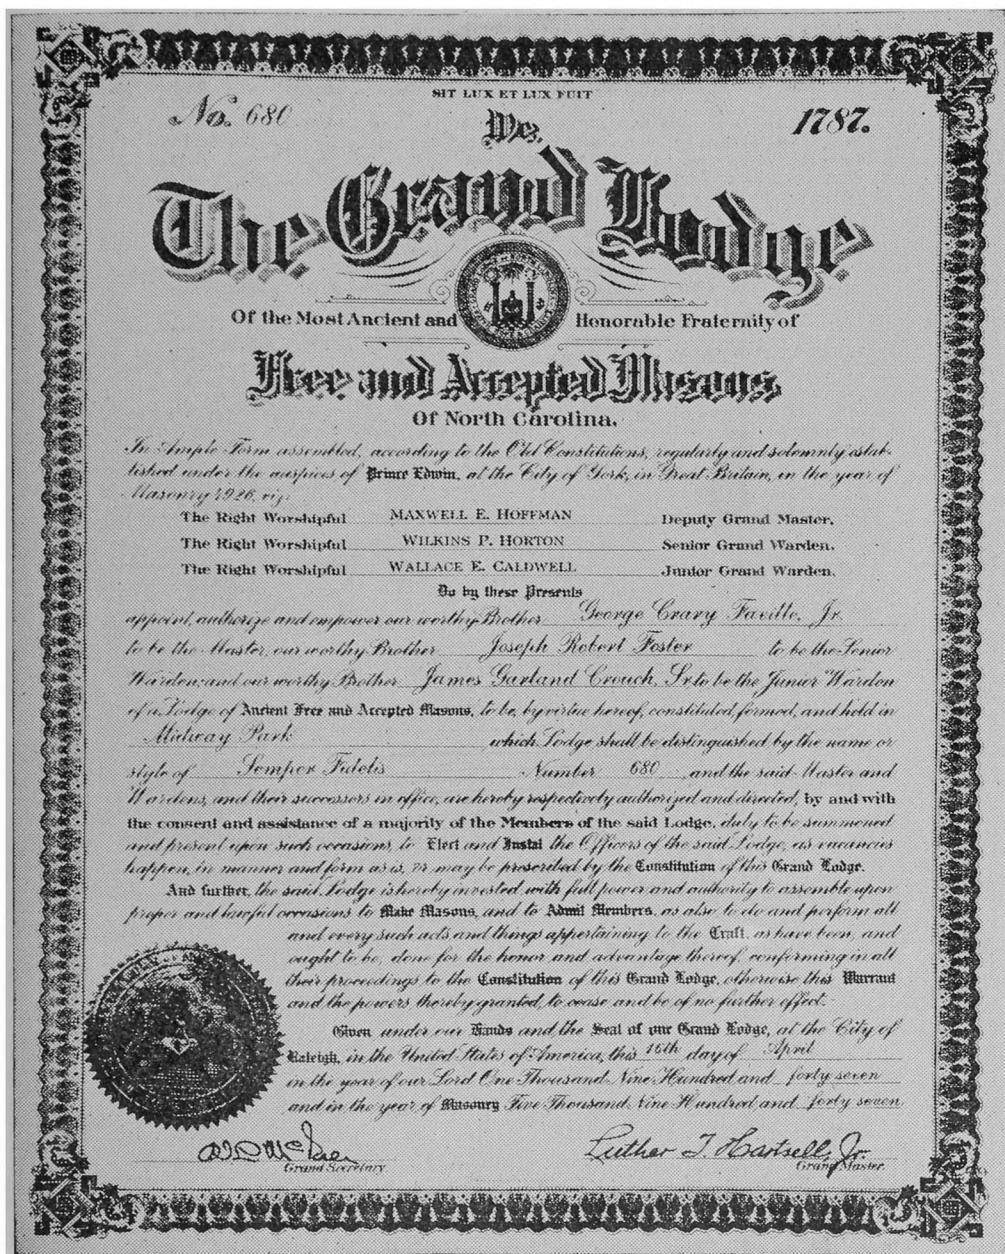 SIT LUX ET LUX FUIT
No. 680
1787.
We,
The Grand Lodge
Of the Most Ancient and Honorable Fraternity of
Free and Accepted Masons
Of North Carolina,
In Ample Form assembled, according to the Old Constitutions, regularly and solemnly estab-
lished under the auspices of Prince Edwin, at the City of York, in Great Britain, in the year of
Masonry 4926, viz:
The Right Worshipful MAXWELL E. HOFFMAN Deputy Grand Master,
The Right Worshipful WILKINS P. HORTON Senior Grand Warden,
The Right Worshipful WALLACE E. CALDWELL Junior Grand Warden,
Do by these Presents
appoint, authorize and empower our worthy Brother George Crary Faville, Jr.
to be the Master, our worthy Brother Joseph Robert Foster to be the Senior
Warden; and our worthy Brother James Garland Crouch, Sr. to be the Junior Warden
of a Lodge of Ancient Free and Accepted Masons, to be, by virtue hereof, constituted, formed, and held in
Midway Park which Lodge shall be distinguished by the name or
style of Semper Fidelis Number 680 and the said Master and
Wardens, and their successors in office, are hereby respectively authorized and directed, by and with
the consent and assistance of a majority of the Members of the said Lodge, duly to be summoned
and present upon such occasions, to Elect and Instal the Officers of the said Lodge, as vacancies
happen, in manner and form as is, or may be prescribed by the Constitution of this Grand Lodge.
And further, the said Lodge is hereby invested with full power and authority to assemble upon
proper and lawful occasions to Make Masons, and to Admit Members, as also to do and perform all
and every such acts and things appertaining to the Craft, as have been, and
ought to be, done for the honor and advantage thereof, conforming in all
their proceedings to the Constitution of this Grand Lodge, otherwise this Warrant
and the powers thereby granted, to cease and be of no further effect.
Given under our Hands and the Seal of our Grand Lodge, at the City of
Raleigh, in the United States of America, this 16th day of April
in the year of our Lord One Thousand Nine Hundred and forty seven
and in the year of Masonry Five Thousand Nine Hundred and forty seven
Grand Secretary
Luther T. Hartsell, Jr.
Grand Master